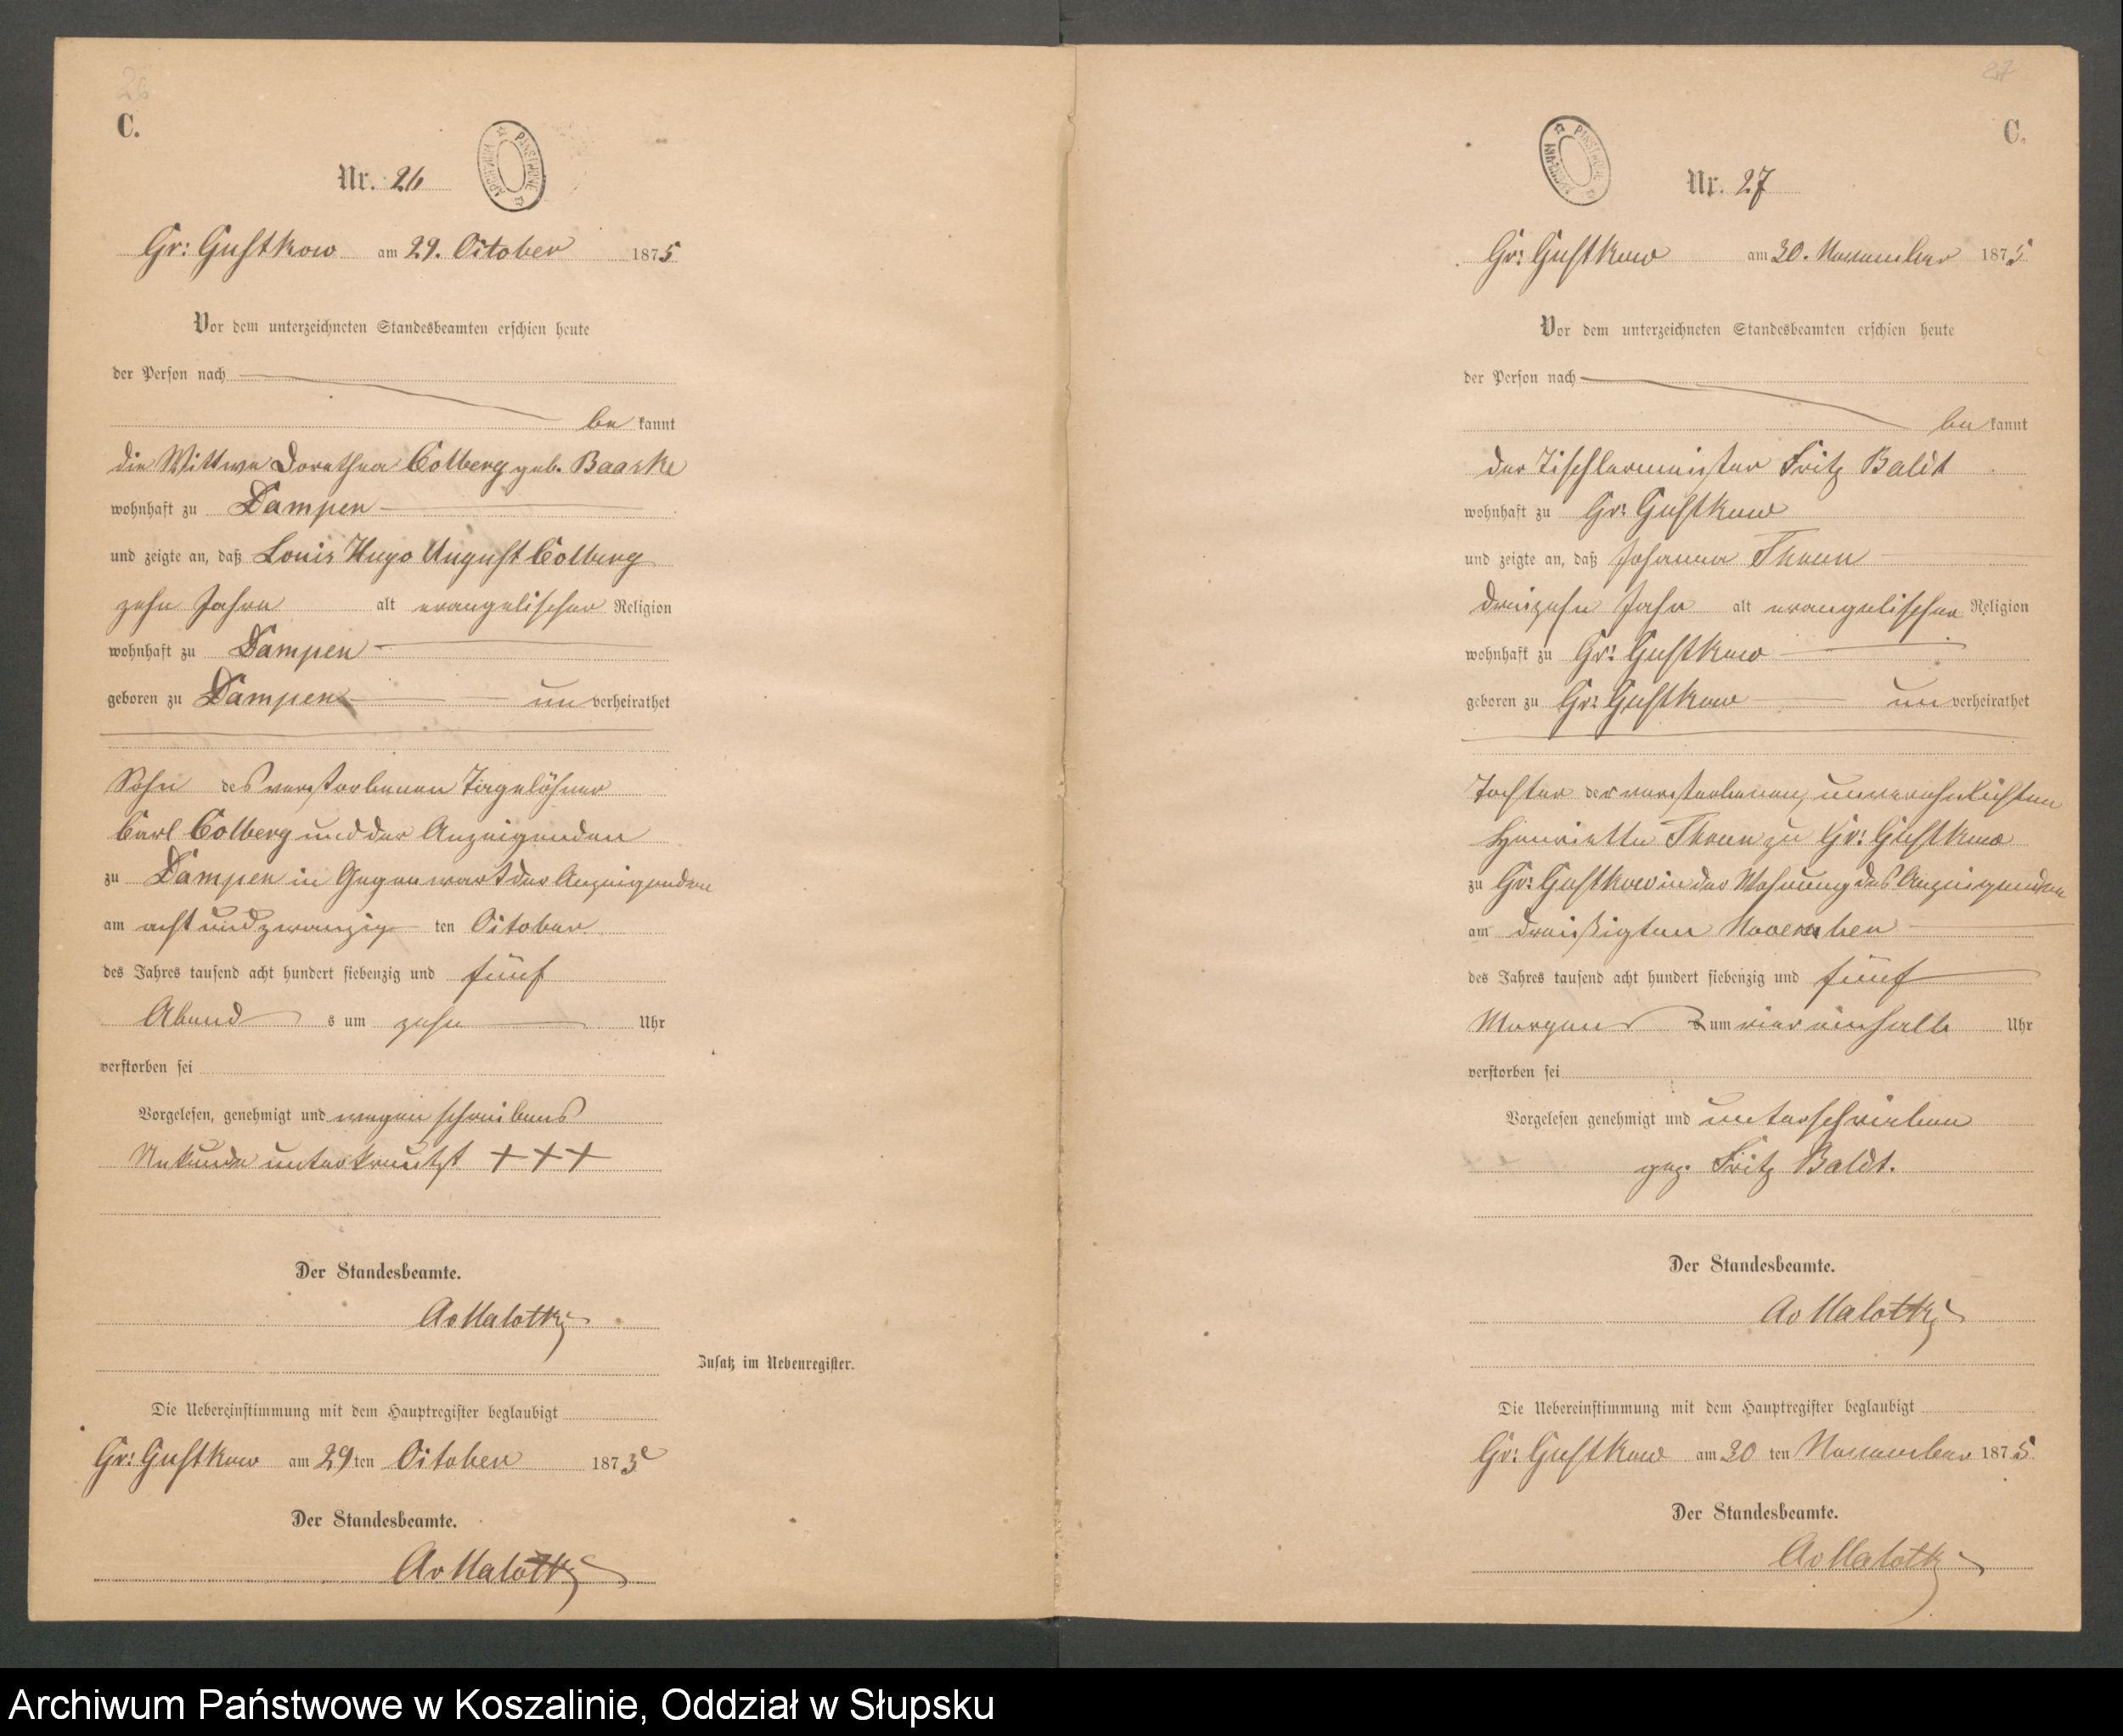 C.
Nr. 26
Gr: Gustkow am 29. October 1875
Vor dem unterzeichneten Standesbeamten erschien heute
der Person nach
be kannt
die Wittwe Dorothea Colberg geb. Baaske
wohnhaft zu Dampen
und zeigte an, daß Louis Hugo August Colberg
zehn Jahre alt evangelischer Religion
wohnhaft zu Dampen
geboren zu Dampen un verheirathet
Sohn des verstorbenen Tagelöhner
Carl Colberg und der Anzeigenden
zu Dampen in Gegenwart der Anzeigenden
am acht und zwanzig ten October
des Jahres tausend acht hundert siebenzig und fünf
Abend s um zehn Uhr
verstorben sei
Vorgelesen, genehmigt und wegen schreibens
Unkunde unterkreutzt +++
Der Standesbeamte.
AvMalottki
Zusatz im Nebenregister.
Die Uebereinstimmung mit dem Hauptregister beglaubigt
Gr: Gustkow am 29 ten October 1875
Der Standesbeamte.
AvMalottki
27
C.
Nr. 27
Gr: Gustkow am 30. November 1875
Vor dem unterzeichneten Standesbeamten erschien heute
der Person nach
be kannt
der Tischlermeister Fritz Baldt
wohnhaft zu Gr: Gustkow
und zeigte an, daß Johanna Thoen
dreizehn Jahr alt evangelischer Religion
wohnhaft zu Gr: Gustkow
geboren zu Gr: Gustkow un verheirathet
Tochter der verstorbenen, unverehelichten
Henriette Thoen zu Gr: Gustkow
zu Gr: Gustkow in der Wohnung des Anzeigenden
am dreißigten November
des Jahres tausend acht hundert siebenzig und fünf
Morgens um vier einhalb Uhr
verstorben sei
Vorgelesen genehmigt und unterschrieben
gez. Fritz Baldt.
Der Standesbeamte.
AvMalottki
Die Uebereinstimmung mit dem Hauptregister beglaubigt
Gr: Gustkow am 30 ten November 1875
Der Standesbeamte.
AvMalottki
ARCHIWUM PAŃSTWOWE
ARCHIWUM PAŃSTWOWE
Archiwum Państwowe w Koszalinie, Oddział w Słupsku